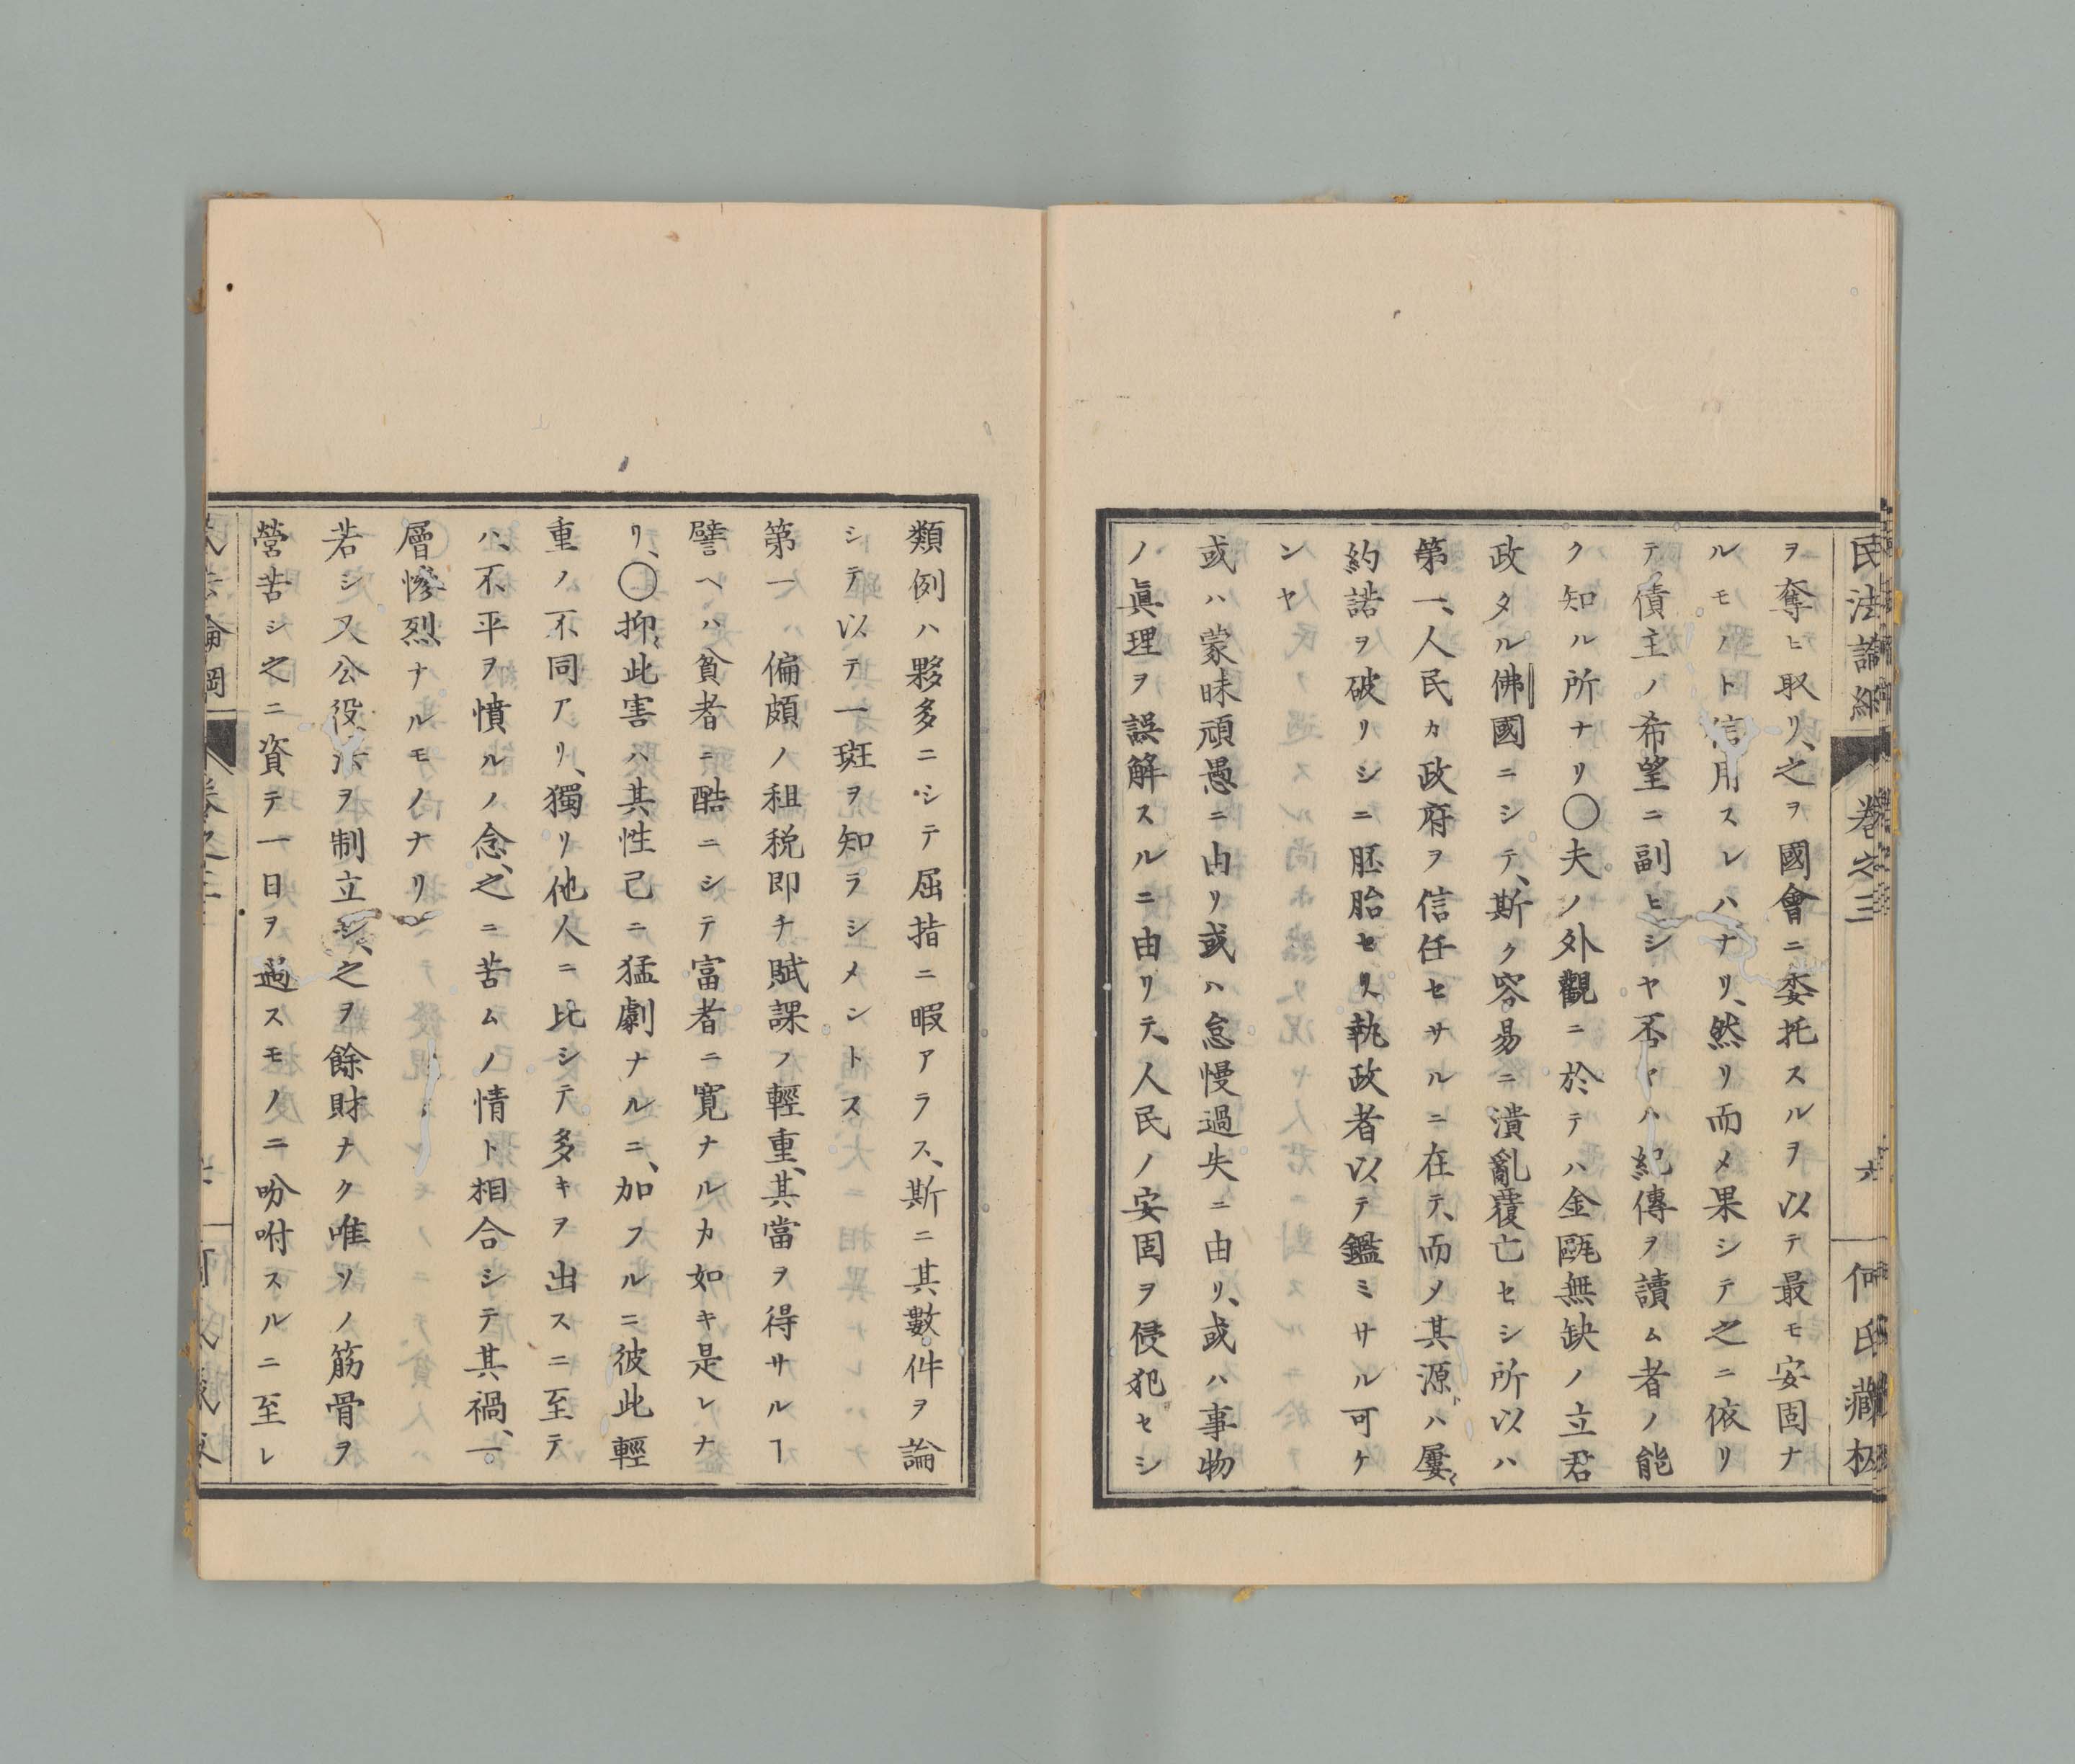 民法論綱 卷之三 六 何氏藏板
ヲ奪ヒ取リ、之ヲ國會ニ委托スルヲ以テ最モ安固ナ
ルモノト信用スレハナリ、然リ而メ果シテ之ニ依リ
テ債主ノ希望ニ副ヒシヤ否ヤハ紀傳ヲ讀ム者ノ能
ク知ル所ナリ〇夫ノ外觀ニ於テハ金甌無缺ノ立君
政タル佛國ニシテ、斯ク容易ニ潰亂覆亡セシ所以ハ
第一、人民カ政府ヲ信任セサルニ在テ、而メ其源ハ屢〻
約諾ヲ破リシニ胚胎セリ、執政者以テ鑑ミサル可ケ
ンヤ
或ハ蒙昧頑愚ニ由リ或ハ怠慢過失ニ由リ、或ハ事物
ノ眞理ヲ誤解スルニ由リテ、人民ノ安固ヲ侵犯セシ
類例ハ夥多ニシテ屈指ニ暇アラス、斯ニ其數件ヲ論
シテ以テ一斑ヲ知ラシメントス
第一 偏頗ノ租税即チ賦課ノ輕重、其當ヲ得サルヿ
譬ヘハ貧者ニ酷ニシテ富者ニ寛ナルカ如キ是レナ
リ、〇抑〻此害ハ其性已ニ猛劇ナルニ、加フルニ彼此輕
重ノ不同アリ、獨リ他人ニ比シテ多キヲ出スニ至テ
ハ、不平ヲ憤ルノ念、之ニ苦ムノ情ト相合シテ其禍、一
層慘烈ナルモノナリ
若シ又公役法ヲ制立シ、之ヲ餘財ナク唯ソノ筋骨ヲ
營苦シ之ニ資テ一日ヲ過スモノニ吩咐スルニ至レ
民法論綱 卷之三